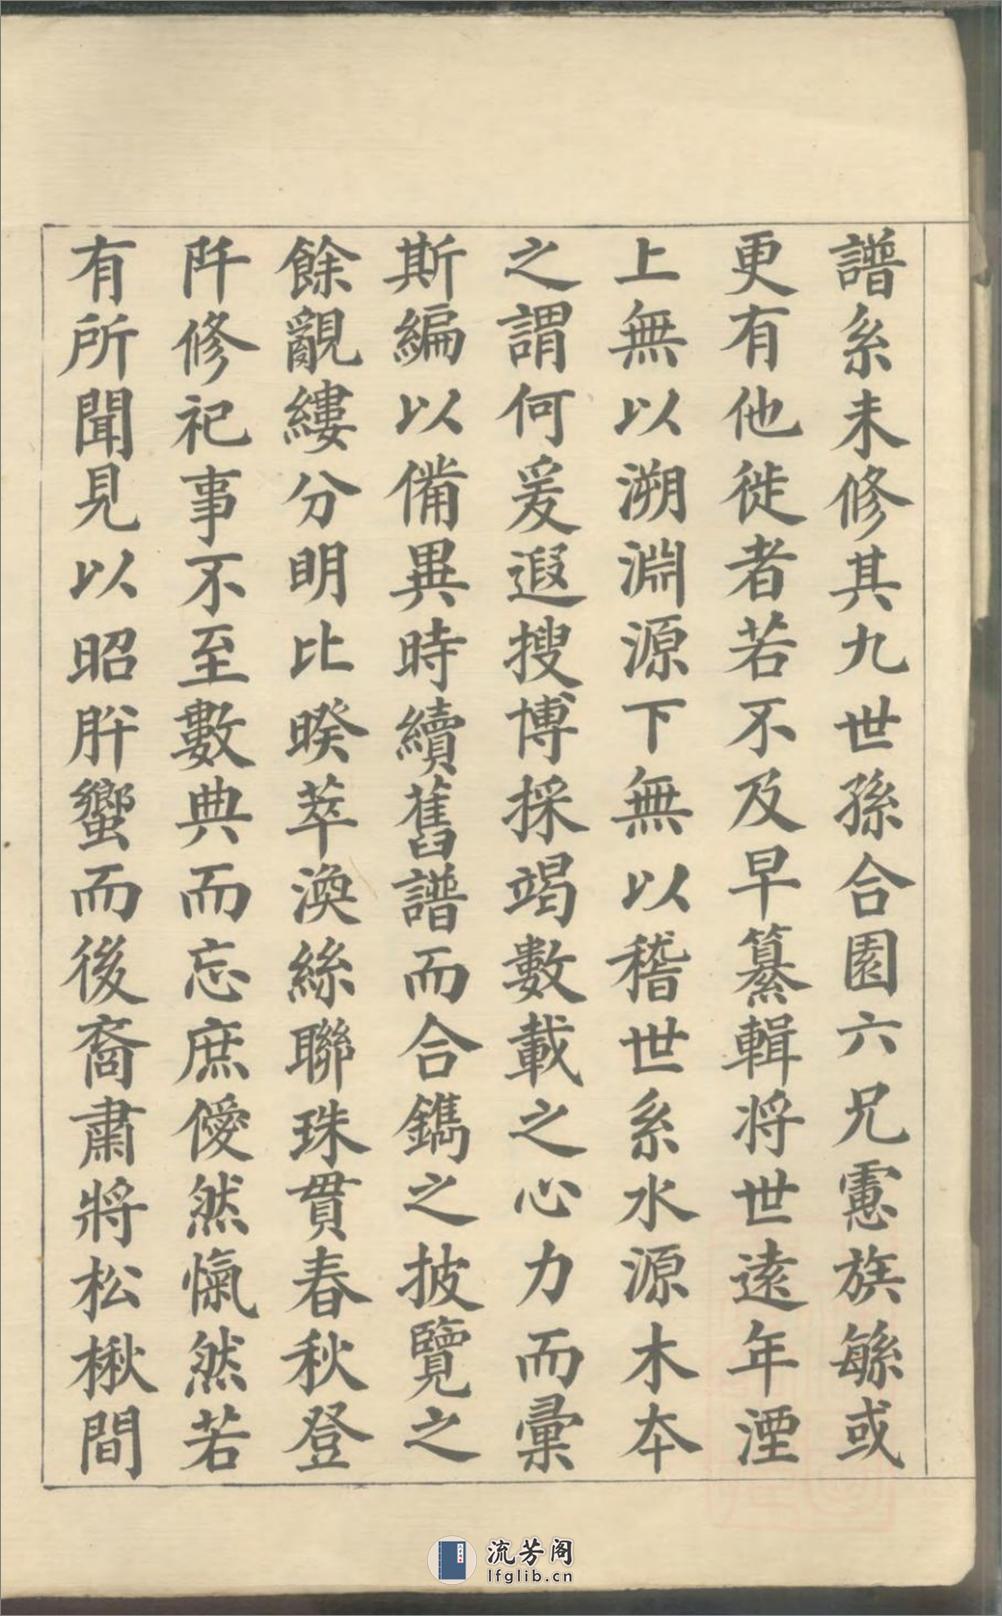 譜系未修其九世孫合園六兄慮族繇或
更有他徙者若不及早纂輯將世遠年湮
上無以溯淵源下無以稽世系水源木本
之謂何爰遐搜博採竭數載之心力而彙
斯編以備異時續舊譜而合鐫之披覽之
餘覼縷分明比暌萃渙絲聯珠貫春秋登
阡修祀事不至數典而忘庶僾然愾然若
有所聞見以昭肸蠁而後裔肅將松楸間
流芳阁
lfglib.cn